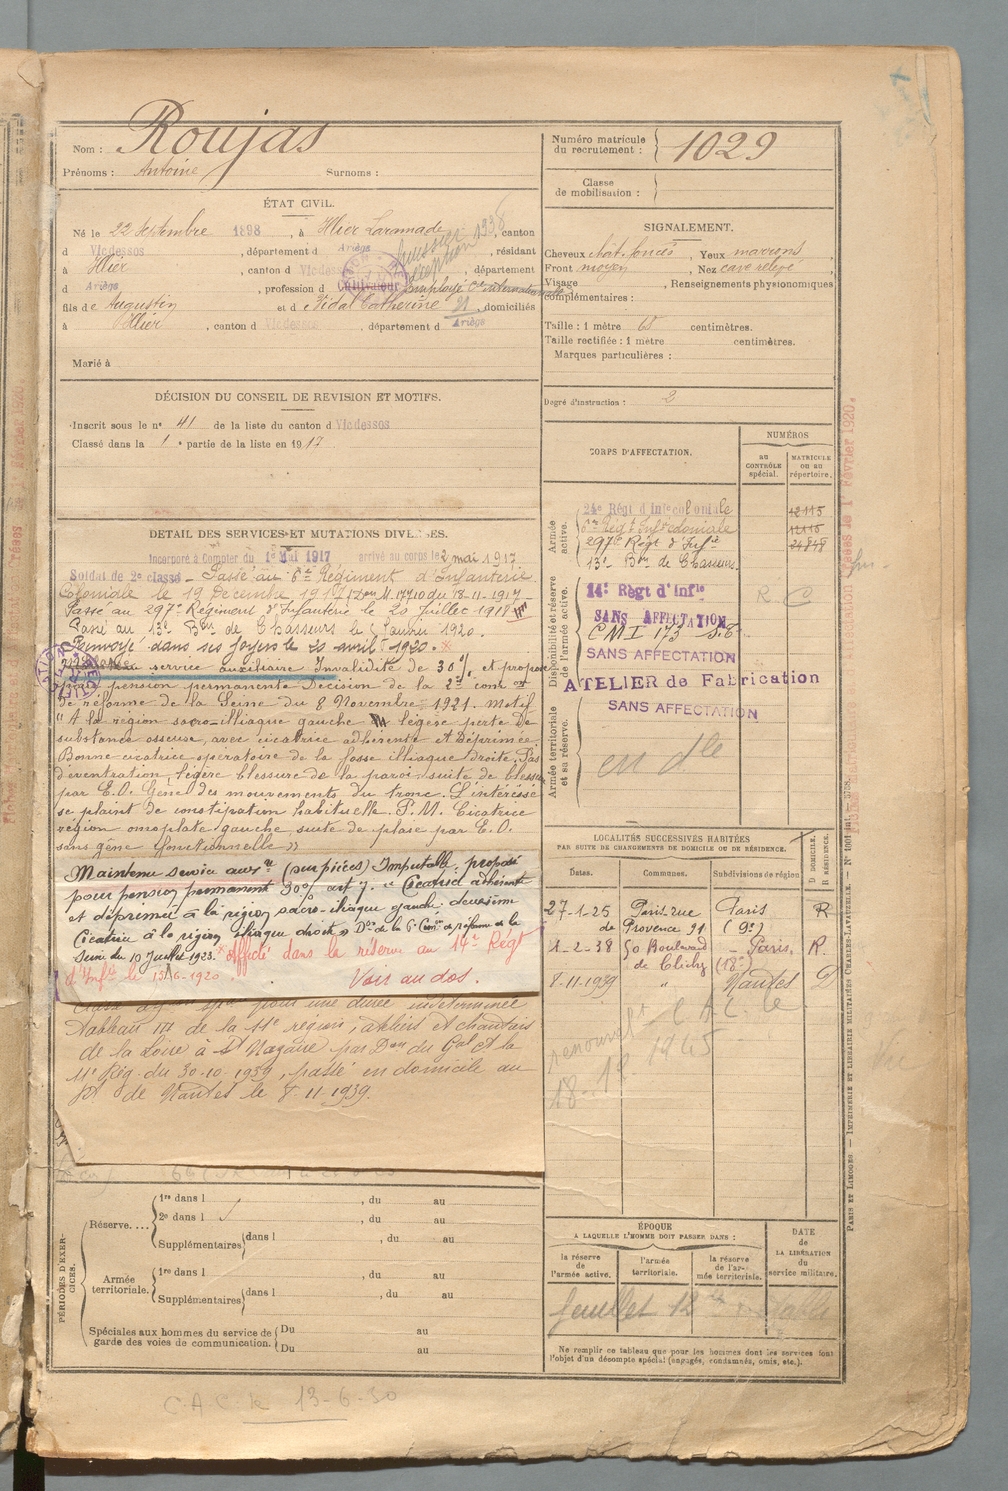 Nom : Roujas
Prénoms : Antoine Surnoms :
Numéro matricule du recrutement : 1029
Classe de mobilisation :
ÉTAT CIVIL.
Né le 22 Septembre 1898, à Illier Laramade, canton
d Vicdessos, département d Ariège, résidant
à Illier, canton d Vicdessos, département
d Ariège, profession d Cultivateur employé
fils de Augustin et de Vidal Catherine, domiciliés
à Illier, canton d Vicdessos, département d Ariège
Marié à
SIGNALEMENT.
Cheveux chât. foncés, Yeux marrons
Front moyen, Nez cave relevé
Visage , Renseignements physionomiques
complémentaires :
Taille : 1 mètre 68 centimètres.
Taille rectifiée : 1 mètre centimètres.
Marques particulières :
Degré d'instruction : 2
DÉCISION DU CONSEIL DE REVISION ET MOTIFS.
Inscrit sous le n° 41 de la liste du canton d Vicdessos
Classé dans la 1e partie de la liste en 1917
DETAIL DES SERVICES ET MUTATIONS DIVERSES.
Incorporé à Compter du 1er Mai 1917 arrivé au corps le 2 mai 1917
Soldat de 2e classe - Passé au 8e Régiment d'Infanterie
Coloniale le 19 Décembre 1917 Don M. 17710 du 18-11-1917
Passé au 297e Régiment d'Infanterie le 20 Juillet 1918
Passé au 13e Bon de Chasseurs le Janvier 1920.
Renvoyé dans ses foyers le 20 avril 1920.
service auxiliaire Invalidité de 30% et proposé
pour pension permanente Décision de la 2e com on
de réforme de la Seine du 8 Novembre 1921. Motif
" A la région sacro-illiaque gauche légère perte de
substance osseuse, avec cicatrice adhérente et déprimée
Bonne cicatrice opératoire de la fosse illiaque droite. Pas
d'éventration, légère blessure de la paroi, suite de blessure
par E.O. Gêne des mouvements du tronc. L'intéressé
se plaint de constipation habituelle. P.M. Cicatrice
région omoplate gauche, suite de plaie par E.O.
sans gêne fonctionnelle "
Maintenu service auxre (sur pièces) Imputable. proposé
pour pension permanente 30% art 7. " Cicatrice adhérente
et déprimée à la région sacro-iliaque gauche; deuxième
Cicatrice à la région iliaque droite " Don de la 6e Comon de réforme de la
Seine du 10 Juillet 1923. * Affecté dans la réserve au 14e Régt
d'Infie le 15-6-1920. Voir au dos.
pour une durée indéterminée
Tableau III de la 11e région, ateliers et chantiers
de la Loire à St Nazaire par Don du Gal Ct la
11e Rég. du 30-10-1939, passé en domicile au
de Nantes le 8-11-1939.
CORPS D'AFFECTATION.
NUMÉROS
au CONTRÔLE spécial.
MATRICULE ou au répertoire.
Armée active.
24e Régt d'Infie coloniale 12115
8e Régt Infie coloniale 12116
297e Régt d'Infie 24848
13e Bon de Chasseurs
Disponibilité et réserve de l'armée active.
14e Régt d'Infie R. C
SANS AFFECTATION
CMI 173
SANS AFFECTATION
ATELIER de Fabrication
SANS AFFECTATION
Armée territoriale et sa réserve.
en dle
LOCALITÉS SUCCESSIVES HABITÉES
PAR SUITE DE CHANGEMENTS DE DOMICILE OU DE RÉSIDENCE.
D DOMICILE. R RÉSIDENCE.
Dates. Communes. Subdivisions de région
27-1-25 Paris rue Paris R
de Provence 91 (9e)
1-2-38 50 Boulevard - Paris. R.
de Clichy (18e)
8-11-1939 " Nantes D
C.A.C. le
18 1945
PÉRIODES D'EXERCICES.
Réserve.... 1re dans l , du au
2e dans l , du au
Supplémentaires dans l , du au
Armée territoriale. 1re dans l , du au
Supplémentaires dans l , du au
Spéciales aux hommes du service de garde des voies de communication. Du au
Du au
ÉPOQUE
A LAQUELLE L'HOMME DOIT PASSER DANS :
la réserve de l'armée active.
l'armée territoriale.
la réserve de l'armée territoriale.
DATE de LA LIBÉRATION du service militaire.
feuillet
Ne remplir ce tableau que pour les hommes dont les services font
l'objet d'un décompte spécial (engagés, condamnés, omis, etc.).
PARIS ET LIMOGES. — IMPRIMERIE ET LIBRAIRIE MILITAIRES CHARLES-LAVAUZELLE.
C.A.C. le 13-6-30